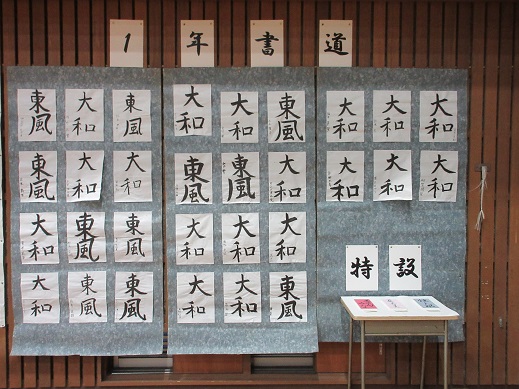 1年書道
東風 大和 東風 大和 大和 東風 大和 大和 大和
東風 大和 大和 東風 東風 大和 大和 大和 大和
大和 東風 東風 大和 大和 大和
大和 東風 東風 大和 大和 東風
特設